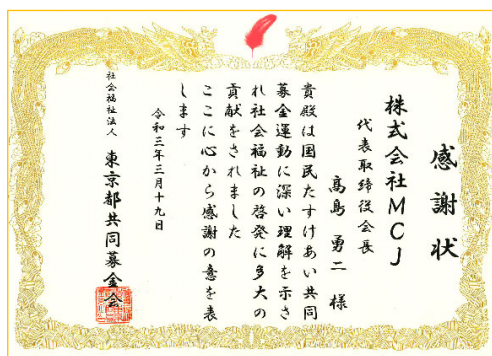 感謝状
株式会社MCJ
代表取締役会長
髙島 勇二 様
貴殿は国民たすけあい共同
募金運動に深い理解を示さ
れ社会福祉の啓発に多大の
貢献をされました
ここに心から感謝の意を表
します
令和三年三月十九日
社会福祉法人 東京都共同募金会